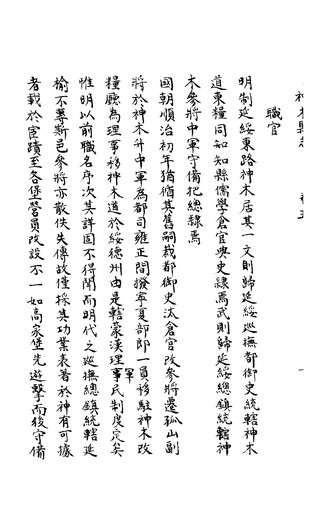 神木縣志
職官
明制延綏東路神木居其一文則歸延綏巡撫都御史統轄神木
道東糧同知知縣儒學倉官典史隸焉武則歸延綏總鎮統轄神
木參將中軍守備把總隸焉
國朝順治初年猶循其舊嗣裁都御史汰倉官改參將遷孤山副
將於神木升中軍為都司雍正間撥寧夏部郎一員移駐神木改
糧廳為理事移神木道於綏德州由是轄蒙漢理事軍民制度定矣
惟明以前職名序次其詳固不得聞而明代之巡撫總鎮統轄延
榆不專斯邑參將亦散佚失傳故僅採其功業表著於神有可據
者載於宦蹟至各堡營員改設不一如高家堡先遊擊而後守備